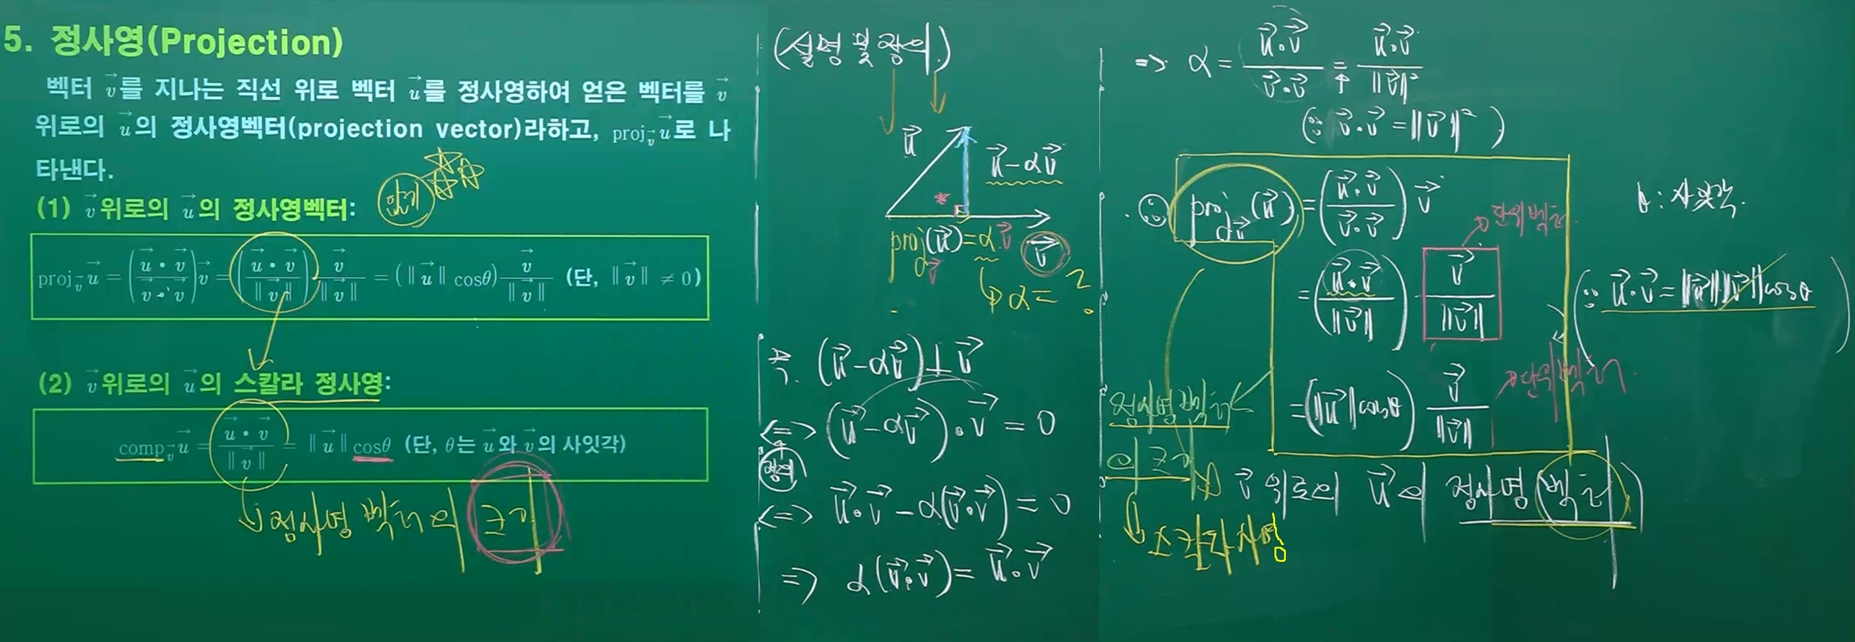 5. 정사영(Projection)
벡터 v⃗를 지나는 직선 위로 벡터 u⃗를 정사영하여 얻은 벡터를 v⃗
위로의 u⃗의 정사영벡터(projection vector)라하고, proj_v⃗ u⃗로 나
타낸다.
(1) v⃗위로의 u⃗의 정사영벡터:
암기
proj_v⃗ u⃗ = (u⃗•v⃗ / v⃗•v⃗) v⃗ = (u⃗•v⃗ / ∥v⃗∥) v⃗/∥v⃗∥ = (∥u⃗∥cosθ) v⃗/∥v⃗∥ (단, ∥v⃗∥ ≠ 0)
(2) v⃗위로의 u⃗의 스칼라 정사영:
comp_v⃗ u⃗ = u⃗•v⃗ / ∥v⃗∥ = ∥u⃗∥cosθ (단, θ는 u⃗와 v⃗의 사잇각)
정사영 벡터의 크기
(설명 및 정의)
u⃗
u⃗-αv⃗
*
proj_v⃗(u⃗) = αv⃗
v⃗
α = ?
(u⃗-αv⃗)⊥v⃗
<=> (u⃗-αv⃗)•v⃗ = 0
<=> u⃗•v⃗-α(v⃗•v⃗) = 0
=> α(v⃗•v⃗) = u⃗•v⃗
=> α = u⃗•v⃗ / v⃗•v⃗ = u⃗•v⃗ / ∥v⃗∥²
(∵ v⃗•v⃗ = ∥v⃗∥²)
∴ proj_v⃗(u⃗) = (u⃗•v⃗ / v⃗•v⃗) v⃗
θ: 사잇각.
단위벡터.
= (u⃗•v⃗ / ∥v⃗∥) v⃗/∥v⃗∥
(∵ u⃗•v⃗ = ∥u⃗∥∥v⃗∥cosθ)
= (∥u⃗∥cosθ) v⃗/∥v⃗∥
단위벡터.
정사영벡터
의 크기
v⃗ 위로의 u⃗의 정사영(벡터)
스칼라사영